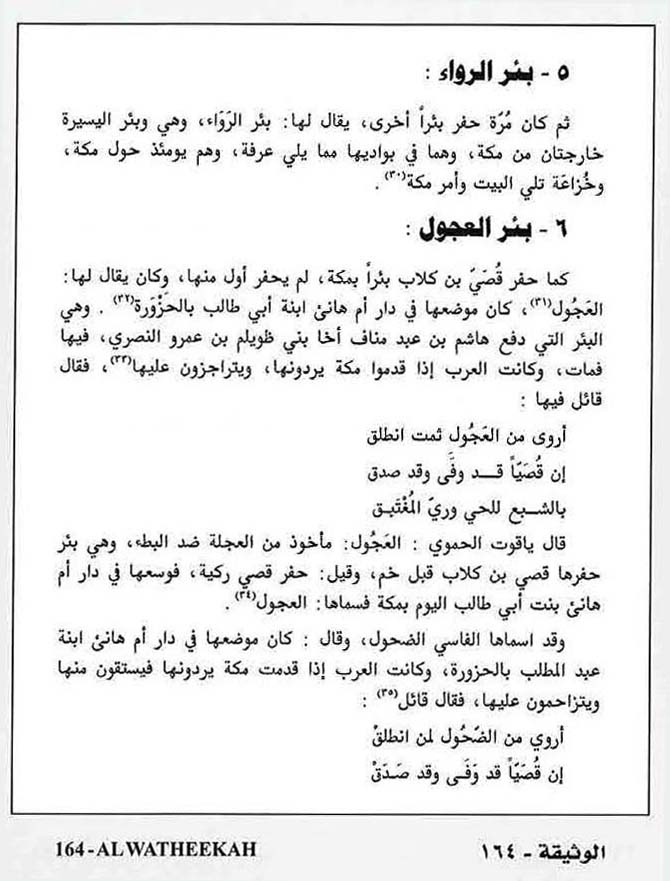 ٥ - بئر الرواء :
ثم كان مُرّة حفر بئراً أخرى، يقال لها: بئر الرَوَاء، وهي وبئر اليسيرة
خارجتان من مكة، وهما في بواديها مما يلي عرفة، وهم يومئذ حول مكة،
وخُزاعَة تلي البيت وأمر مكة(٣٠) .
٦ - بئر العجول :
كما حفر قُصَيّ بن كلاب بئراً بمكة، لم يحفر أول منها، وكان يقال لها:
العَجُول(٣١)، كان موضعها في دار أم هانئ ابنة أبي طالب بالحَزْوَرة(٣٢) . وهي
البئر التي دفع هاشم بن عبد مناف أخا بني ظويلم بن عمرو النصري، فيها
فمات، وكانت العرب إذا قدموا مكة يردونها، ويتراجزون عليها(٣٣)، فقال
قائل فيها :
أروى من العَجُول ثمت انطلق
إن قُصَيّاً قـــد وفَّى وقد صدق
بالشــبع للحي وريّ المُغْتَبِـق
قال ياقوت الحموي : العَجُول: مأخوذ من العجلة ضد البطء، وهي بئر
حفرها قصي بن كلاب قبل خم، وقيل: حفر قصي ركية، فوسعها في دار أم
هانئ بنت أبي طالب اليوم بمكة فسماها: العجول(٣٤) .
وقد اسماها الفاسي الضحول، وقال : كان موضعها في دار أم هانئ ابنة
عبد المطلب بالحزورة، وكانت العرب إذا قدمت مكة يردونها فيستقون منها
ويتزاحمون عليها، فقال قائل(٣٥) :
أروي من الضّحُول لمن انطلقْ
إن قُصَيّاً قد وَفَــى وقد صَـدَقْ
164-ALWATHEEKAH الوثيقة - ١٦٤